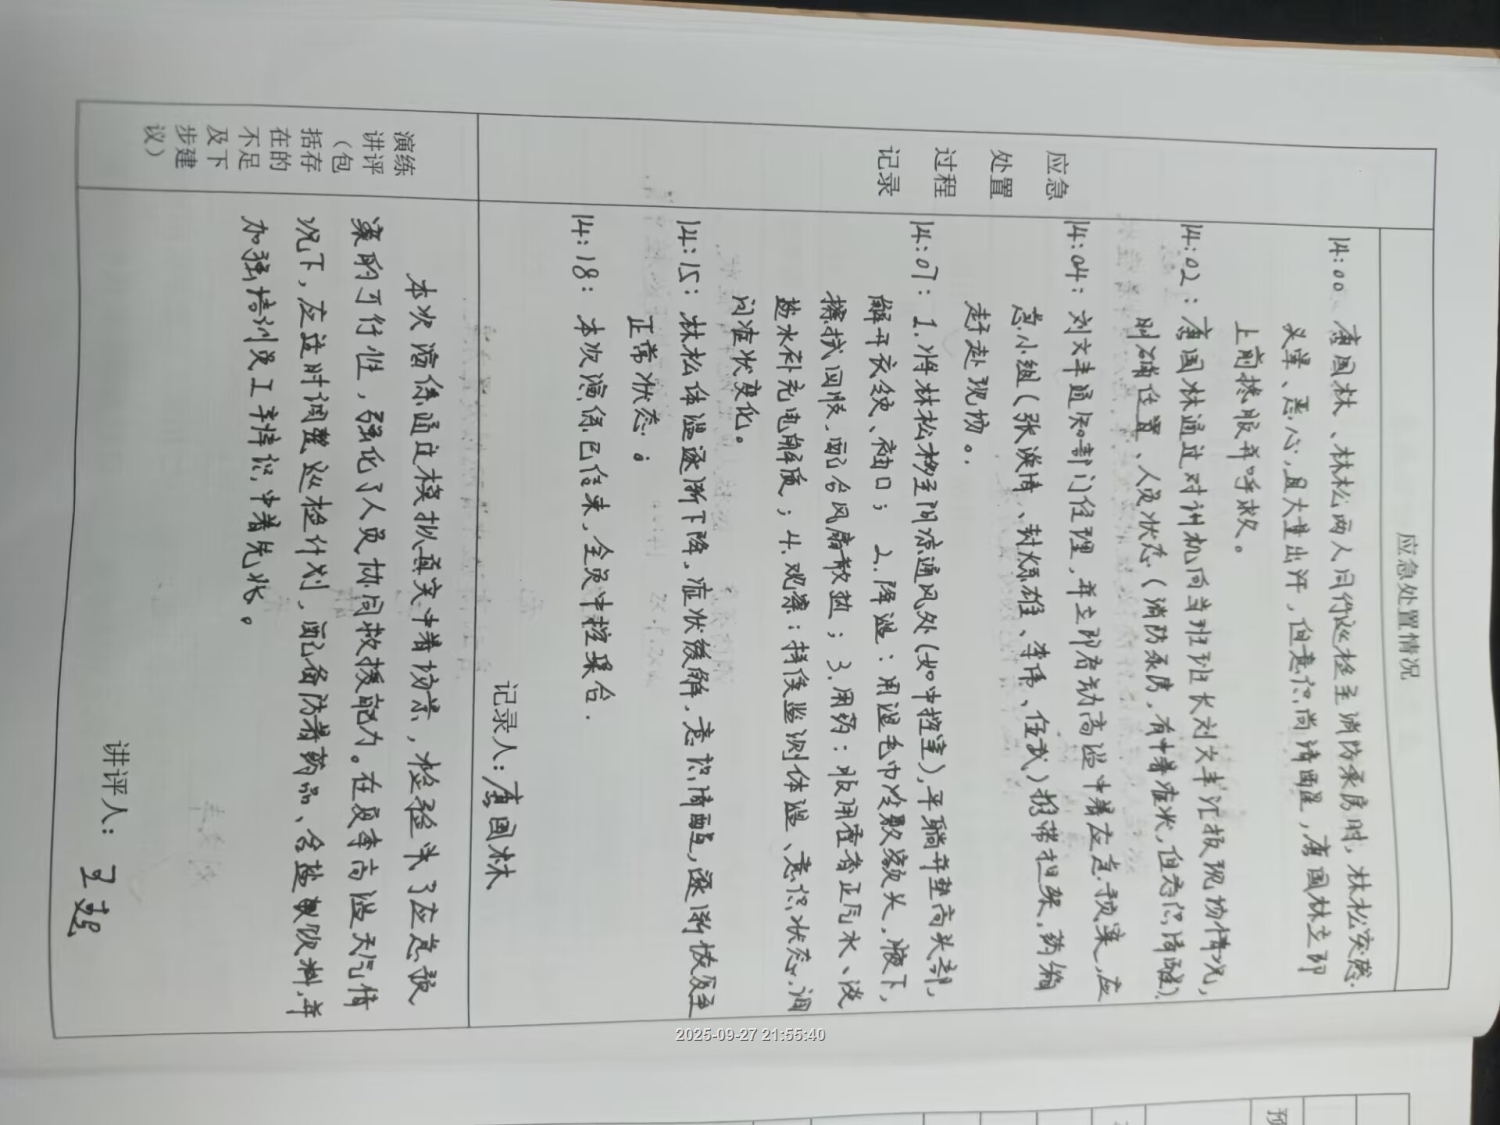 应急处置情况
应急
处置
过程
记录
14:00 唐国林、林松两人同行巡检至消防泵房时,林松突感
头晕、恶心,且大量出汗,但意识尚清醒,唐国林立即
上前搀服并呼救。
14:02:唐国林通过对讲机向当班班长刘文丰汇报现场情况,
明确位置、人员状态(消防泵房,有中暑症状,但意识清醒).
14:04:刘文丰通知部门经理,并立即启动高温中暑应急预案,应
急小组(张 、封 雄、李伟、任武)携带担架,药箱
赶赴现场。
14:07:1.将林松移至阴凉通风处(如中控室),平躺并垫高头部,
解开衣领、袖口;2.降温:用湿毛巾冷敷额头,腋下,
擦拭四肢,配合风扇散热;3.用药:服用藿香正气水、淡
盐水补充电解质;4.观察:持续监测体温、意识状态,询
问症状变化。
14:15:林松体温逐渐下降,症状缓解,意识清醒,逐渐恢复至
正常状态。
14:18:本次演练已结束,全员中控集合.
记录人:唐国林
演练
讲评
(包
括存
在的
不足
及下
步建
议)
本次演练通过模拟真实中暑场景,检验 了应急预
案的可行性,强化了人员协同救援能力。在夏季高温天气情
况下,应适时调整巡检计划,配备防暑药品、含盐 饮料,并
加强培训员工 识 中暑先兆。
讲评人:
2025-09-27 21:55:40
预